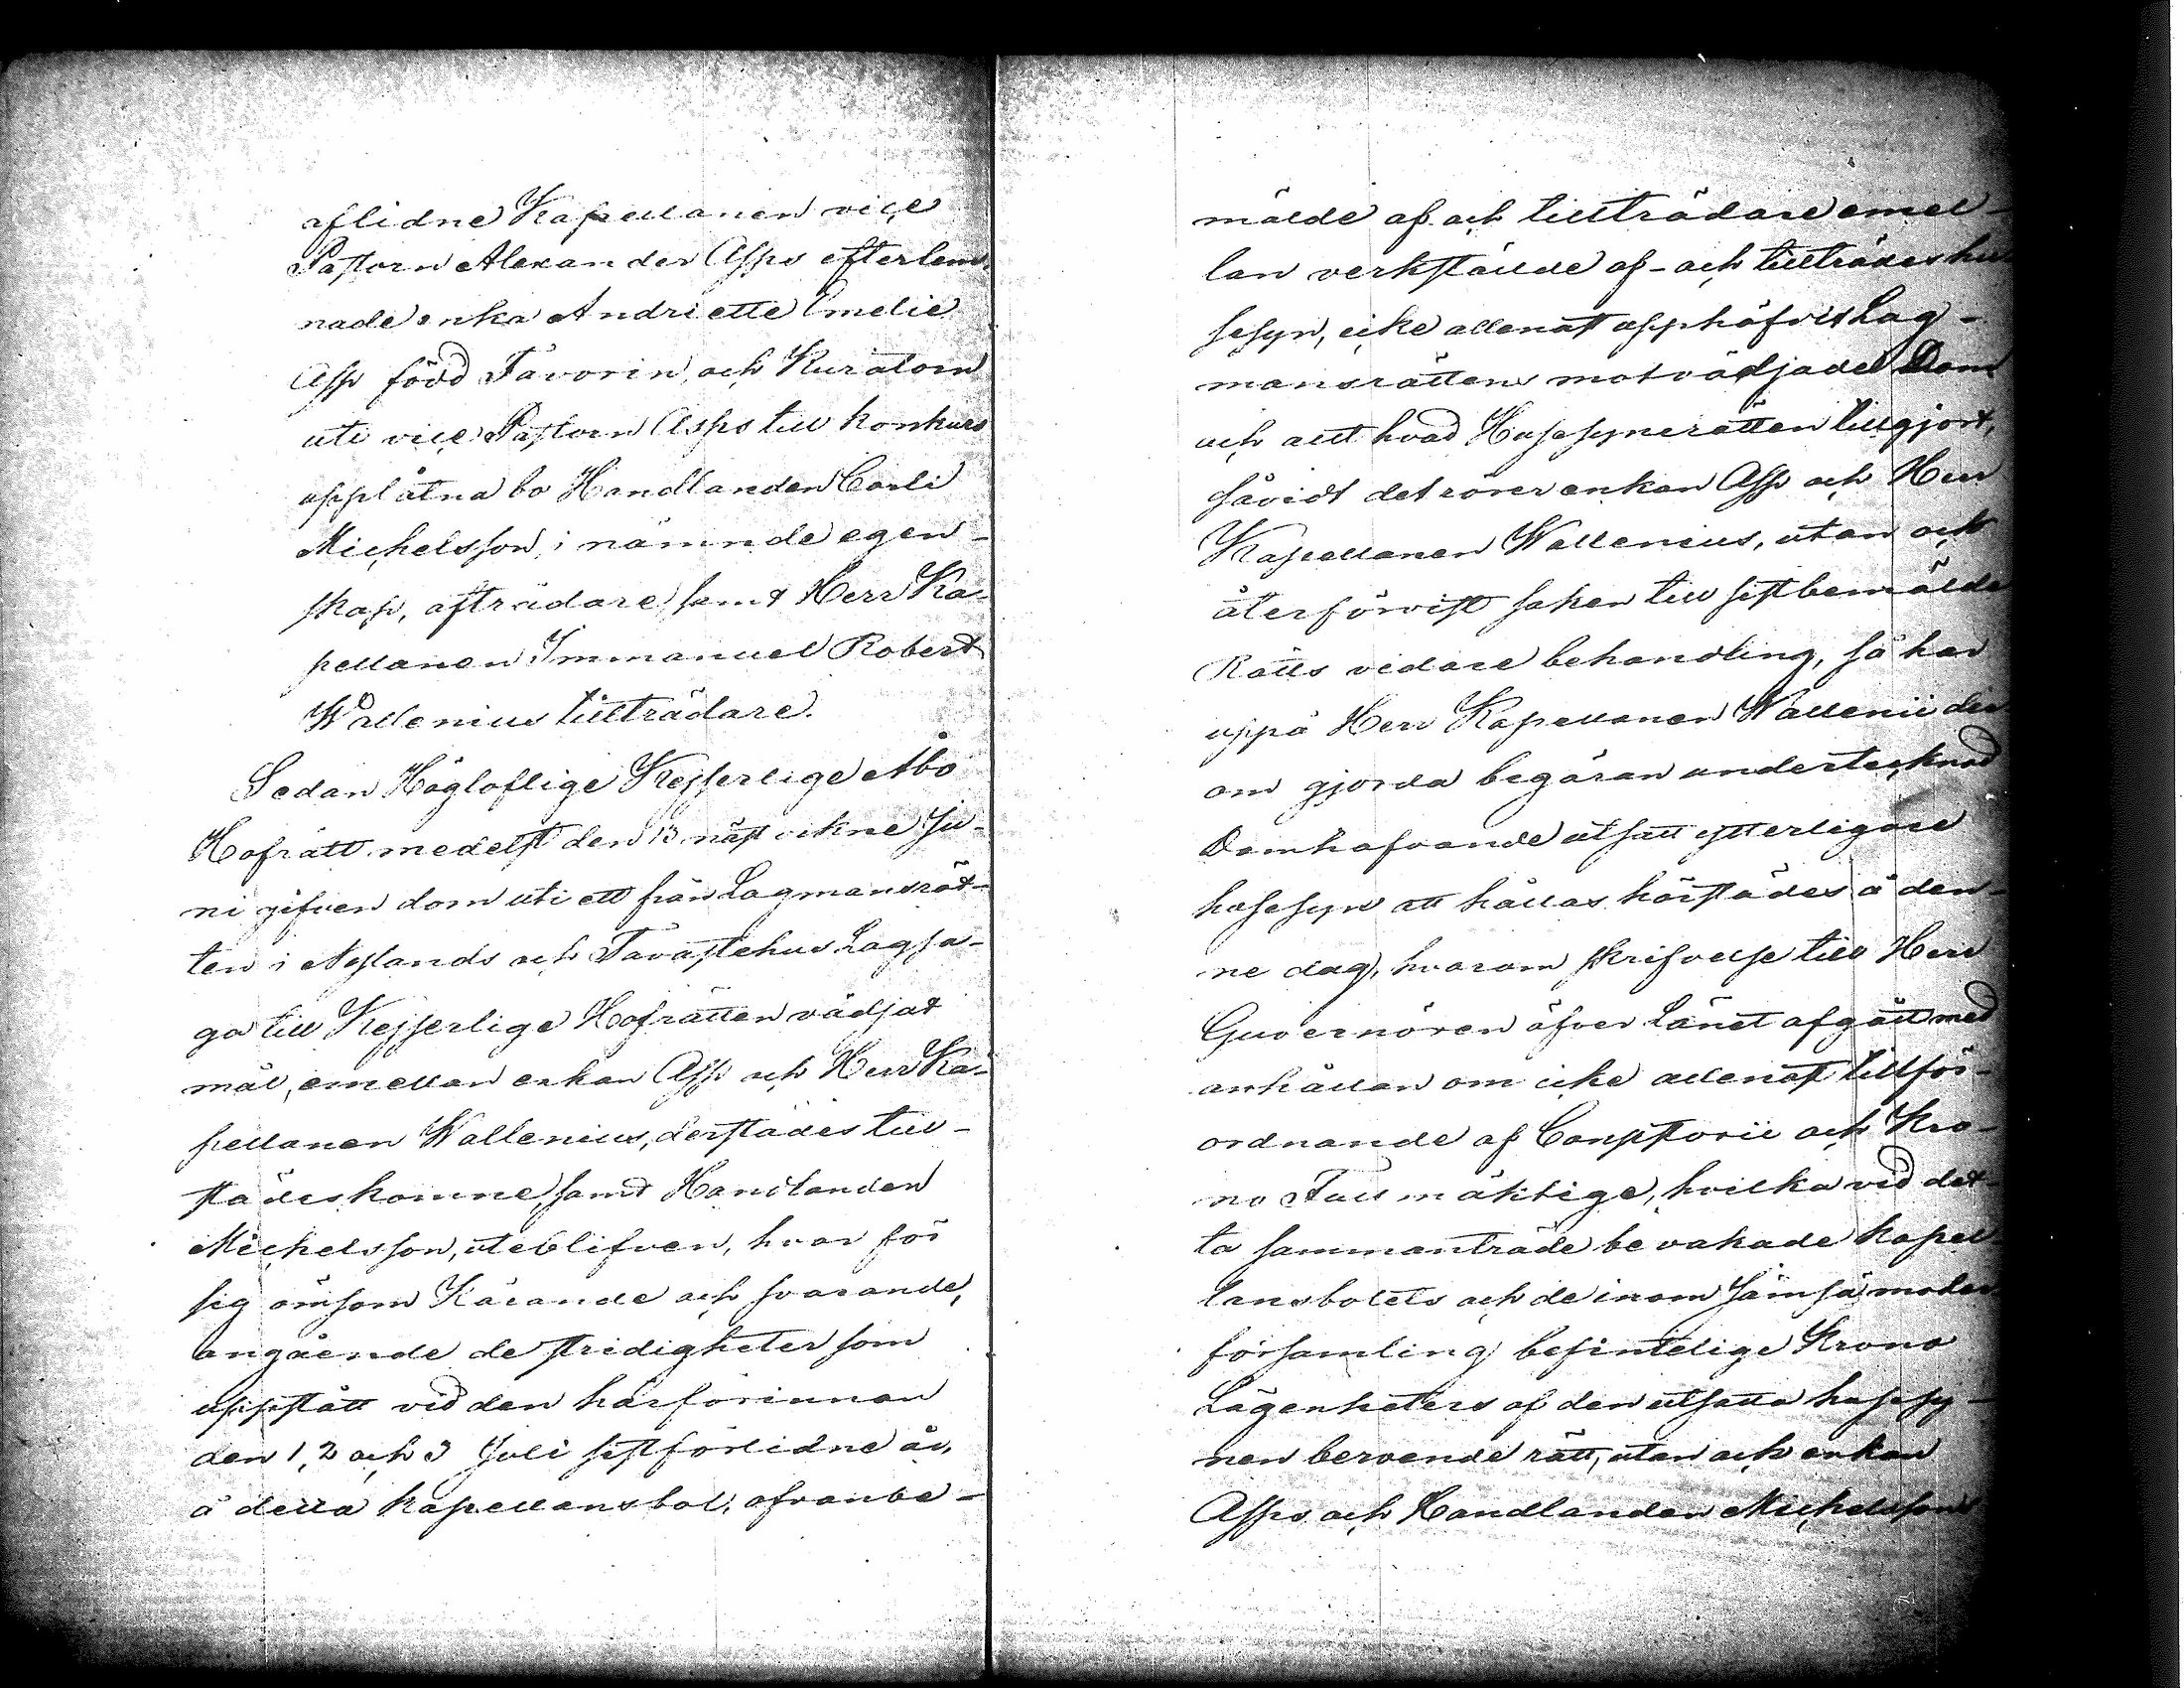 aflidne Kapellanen vice
Pastorn Alexander Asps efterlem-
nade enka Andriette Emelie
Asp född Favorin, och Kuratorn
uti vice Pastorn Asps till konkurs
upplåtna bo Handlanden Carli
Michelsson, i nämnde egen-
skap, afträdare, samt Herr Ka-
pellanen Immanuel Robert
Wallenius tillträdare.
Sedan Högloflige Kejserlige Åbo
Hofrätt medelst den 13 näst vikne Ju-
ni gifven dom uti ett från Lagmansrät-
ten i Nylands och Tavastehus Lagsa-
ga till Kejserlige Hofrätten vädjat
mål, emellan enkan Asp och Herr Ka-
pellanen Wallenius, derstädes till-
städeskomne, samt Handlanden
Michelsson, utebliven, hvar för
sig ömsom Kärande och svarande,
angående de stridigheter som
uppstått vid den härförinnan
den 1, 2 och 3 Juli sistförlidne år,
å detta kapellansbol, ofvanbe-
mälde af- och tillträdare emel-
lan verkställde af- och tillträdes hu-
sesyn, icke allenast upphäfvit Lag-
mansrättens motvädjade Dom
och allt hvad Husesynerätten tillgjort,
såvidt det rörer enkan Asp och Herr
Kapellanen Wallenius, utan ock
återförvist saken till sistbemälde
Rätts vidare behandling, så har
uppå Herr Kapellanen Wallenii der
om gjorda begäran undertecknad
Domhafvande utsatt ytterligare
husesyn att hållas härstädes å den-
ne dag, hvarom skrifvelse till Herr
Guvernören öfver Länet afgått med
anhållan om icke allenast tillför-
ordnande af Consistorii och Kro-
no Fullmäktige, hvilka vid det-
ta sammanträde bevakade kapel-
lansbolets och de inom Jämsä moder
församling befintelige Krono
Lägenheters af den utsatta husesy-
nen beroende rätt, utan ock enkan
Asps och Handlanden Michelssons